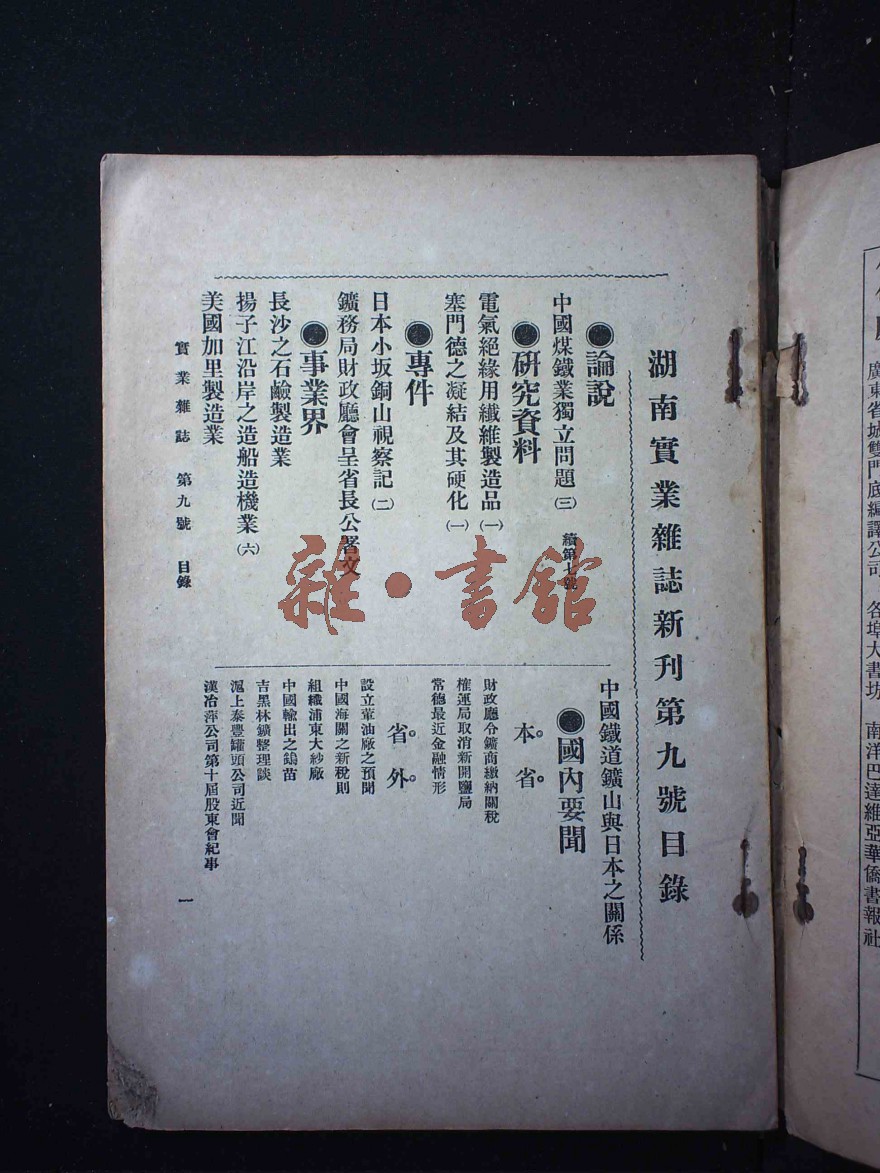 湖南實業雜誌新刊第九號目錄
●論說
中國煤鐵業獨立問題(三) 續第七號
●研究資料
電氣絕緣用纖維製造品(一)
塞門德之凝結及其硬化(一)
●專件
日本小坂銅山視察記(二)
鑛務局財政廳會呈省長公署文
●事業界
長沙之石鹼製造業
揚子江沿岸之造船造機業(六)
美國加里製造業
中國鐵道鑛山與日本之關係
●國內要聞
本省
財政廳令鑛商繳納關稅
榷運局取消新開鹽局
常德最近金融情形
省外
設立葷油廠之預聞
中國海關之新稅則
組織浦東大紗廠
中國輸出之鎢苗
吉黑林鑛整理談
滬上泰豐罐頭公司近聞
漢冶萍公司第十屆股東會紀事
實業雜誌 第九號 目錄
一
雜·書館
廣東省城雙門底編譯公司 各埠大書坊 南洋巴達維亞華僑書報社